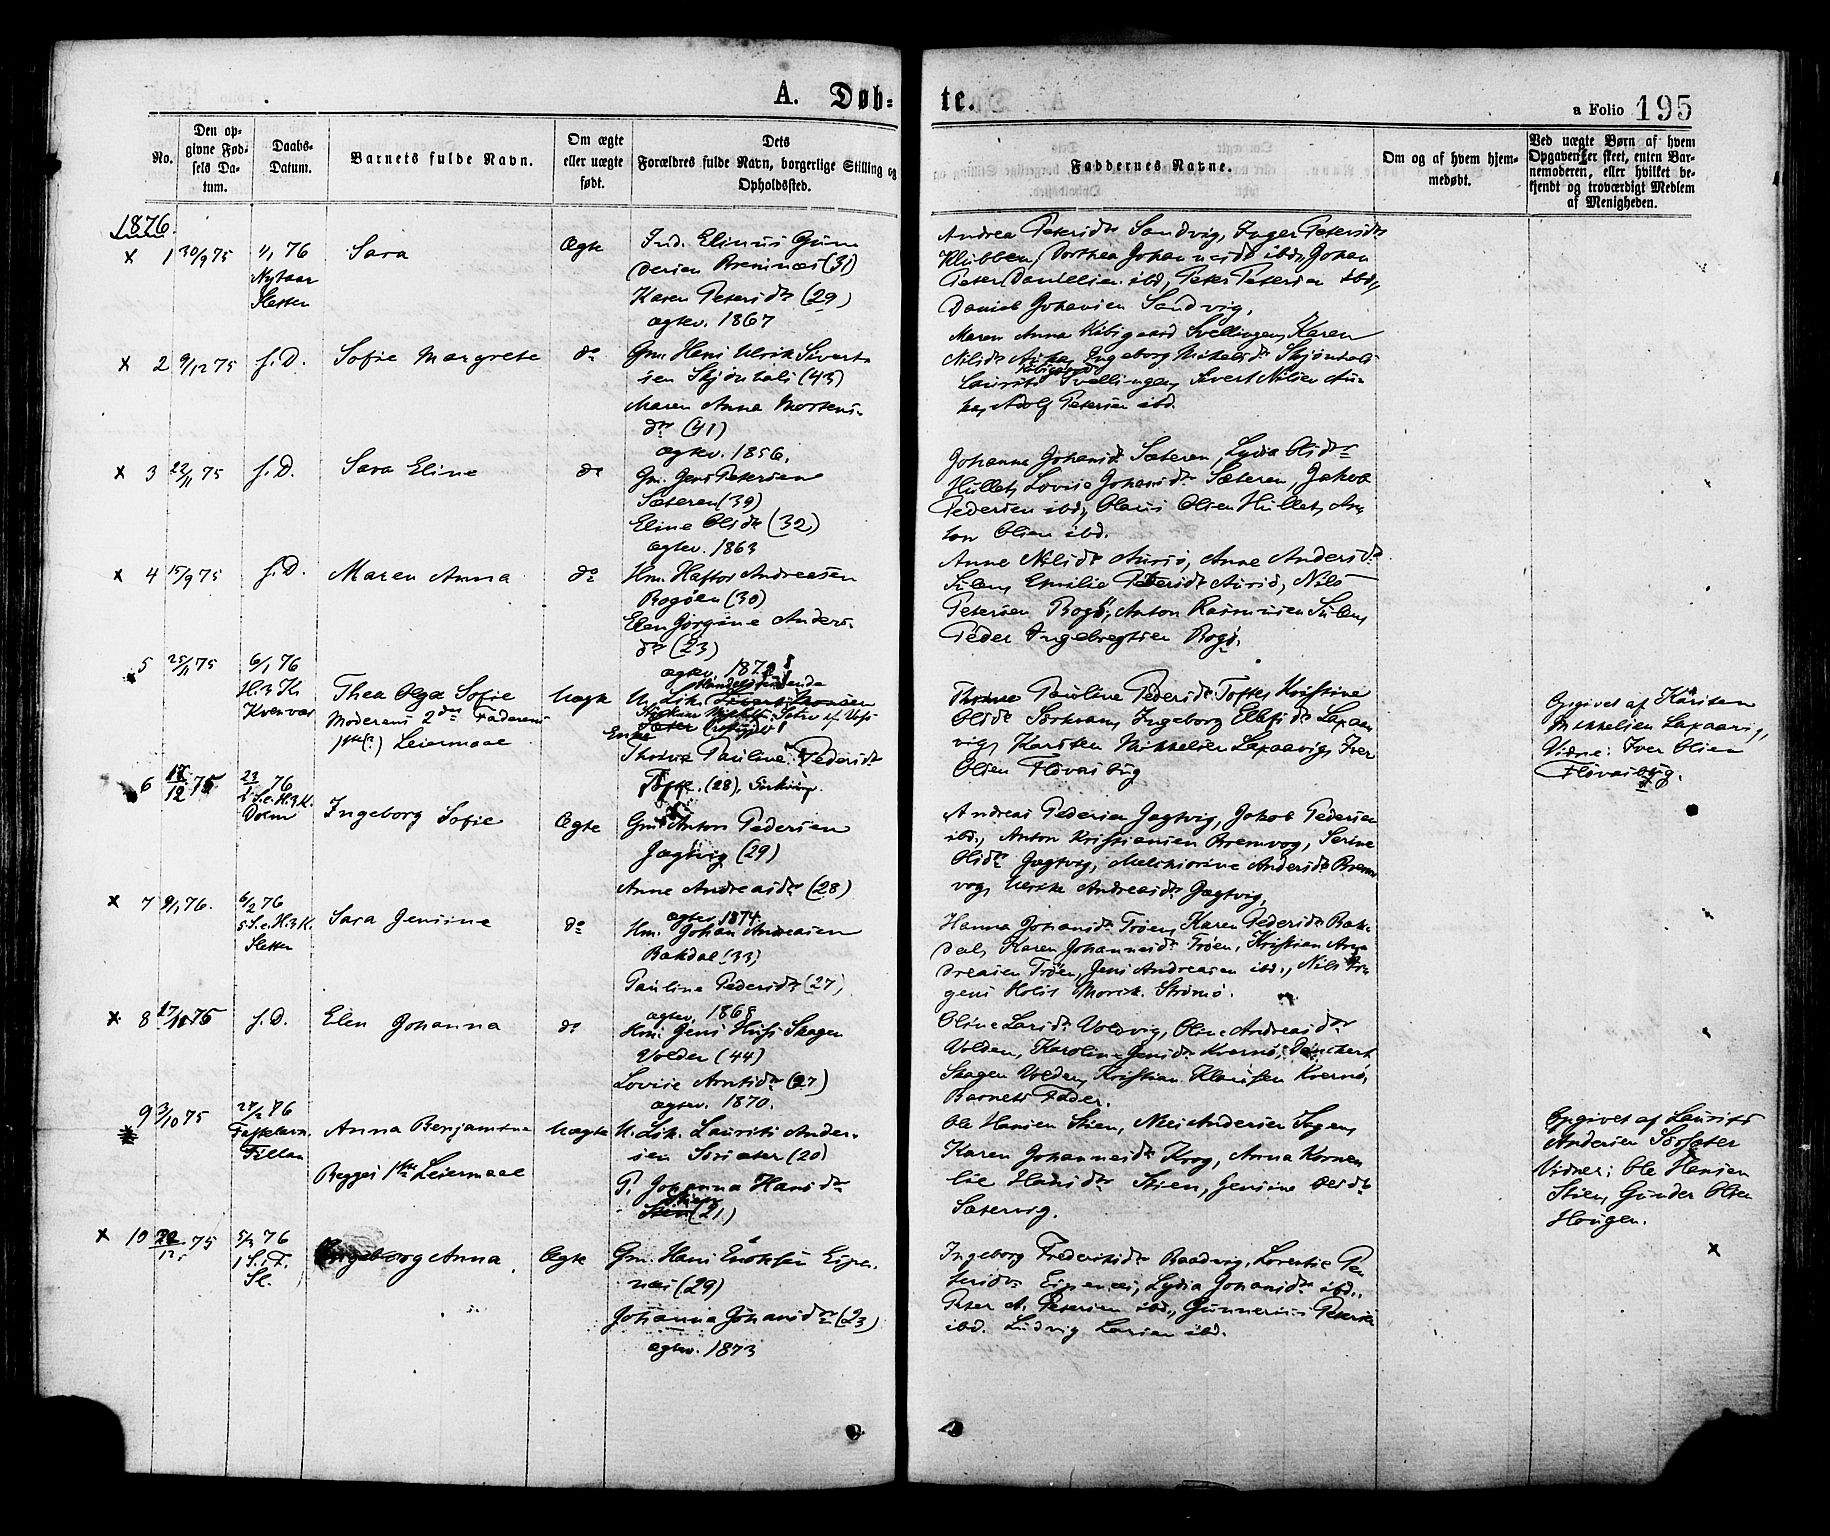 A. Døb=
te.
a Folio 195
No.
Den op=
givne Fød=
sels Da=
tum.
Daabs=
Datum.
Barnets fulde Navn.
Om ægte
eller uægte
født.
Dets
Forældres fulde Navn, borgerlige Stilling og
Opholdssted.
Faddernes Navne.
Om og af hvem hjem=
medøbt.
Ved uægte Børn af hvem
Opgaven er skeet, enten Bar=
nemoderen, eller hvilket be=
kjendt og troværdigt Medlem
af Menigheden.
1876.
x 1 30/9 75
1/1 76
Nytaar
Sletten
Sara
Ægte
Ind. Elinus Gun
dersen Bremnæs (31)
Karen Petersdr (29)
ægtev. 1867
Andrea Petersdr Sandvig, Inger Petersdr
Klubben, Dorthea Johannesdr ibd, Johan
Peter Danielsen ibd, Peter Petersen ibd,
Daniel Johansen Sandvig.
x 2 9/12 75
s. D.
Sofie Margrete
do
Gm. Hans Ulrik Sivert
sen Skjønhals (43)
Maren Anna Mortens-
dr (41)
ægtev. 1856.
Maren Anna Svellingen, Karen
Nilsdr Ingeborg Mikelsdr Skjønhals
Laurits Svellingen, Sivert Nilsen
Adolf Petersen ibd.
x 3 22/11 75
s. D.
Sara Eline
do
Gm. Jens Petersen
Sæteren (39)
Eline Olsdr (32)
ægtev. 1863
Johanna Johansdr Sæteren, Lydia Olsdr
Hullet, Lovise Johansdr Sæteren, Jakob
Pedersen ibd, Olaus Olsen Hullet, An
ton Olsen ibd.
x 4 15/9 75
s. D.
Maren Anna
do
Hm. Haftor Andreasen
Bogøen (30)
Elen Jørgine Anders-
dr (23)
Anne Nilsdr Aursø, Anne Andersdr
Sulen, Emilie Petersdr Aursø, Nils
Petersen Bogø, Anton Rasmussen Sulen,
Peder Ingebregtsen Bogø.
5 25/11 75
6/1 76
H3K
Kvenvær
Thea Olga Sofie
Moderens 2det Faderens
1ste(?) Leiermaal
Uægte
Enke
Thrine Pauline Pedersdr
(28),
Thrine Pauline Pedersdr Tofte, Kristine
Olsdr Ingeborg Ellefsdr Laxaa
vig, Karsten Mikkelsen Laxaavig, Iver
Olsen
Opgivet af Karsten
Mikkelsen Laxaavig,
Vidne: Iver Olsen
6 12 75
23/1 76
S. e. H3K.
Dolm
Ingeborg Sofie
Ægte
Gm Anton Pedersen
Jægtvig (29)
Anne Andreasdr (28)
ægtev. 1874.
Andreas Pedersen Jægtvig, Jakob Pedersen
ibd., Anton Kristiansen Bremvog, Serine
Olsdr Jægtvig, Melkiorine Andersdr Brem
vog, Andreasdr Jægtvig,
x 7 9/1 76.
6/2 76
5 S. e. H3K.
Sletten
Sara Jensine
do
Hm. Johan Andreasen
Bakdal (33)
Pauline Pedersdr (27)
ægtev. 1868
Hanna Johansdr Trøen, Karen Pedersdr Bak-
dal, Karen Johannesdr Trøen, Kristian An
dreasen Trøen, Jens Andreasen ibd., Nils
x 8 75
s. D.
Elen Johanna
do
Hm. Jens Huss Skagen
Volden (44)
Lovise Arntsdr (27)
ægtev. 1870.
Oline Larsdr Voldvig, Oline Andreasdr
Volden, Karoline Jensdr Kvernø,
Skagen Volden, Kristian Klausen Kvernø,
Barnets Fader.
9 3/10 75
27/2 76
Fastelavn.
Fillan
Anna Benjamine
Begges 1ste Leiermaal
Uægte
U. Lsk. Laurits Ander-
sen (20)
P. Johanna Hansdr
Stien (21)
Ole Hansen Stien, Andersen
Karen Johannesdr Krog, Anna Korne
lie Hansdr Stien, Jensine Olsdr
Sætervig.
Opgivet af Laurits
Andersen
Vidner: Ole Hansen
Stien, Gunder Olsen
Hougen.
x 10 75
5/3 76
1 S. i F.
Sl.
Ingeborg Anna.
Ægte
Gm. Hans
næs (29)
Johanna Johansdr (23)
ægtev. 1873
Ingeborg Frederiksdr Raadvig, Lorentse Pe
tersdr Lydia Johansdr ibd.,
Peter A. Petersen ibd., Gunnerius Petersen
ibd. Ludvig Larsen ibd.
x